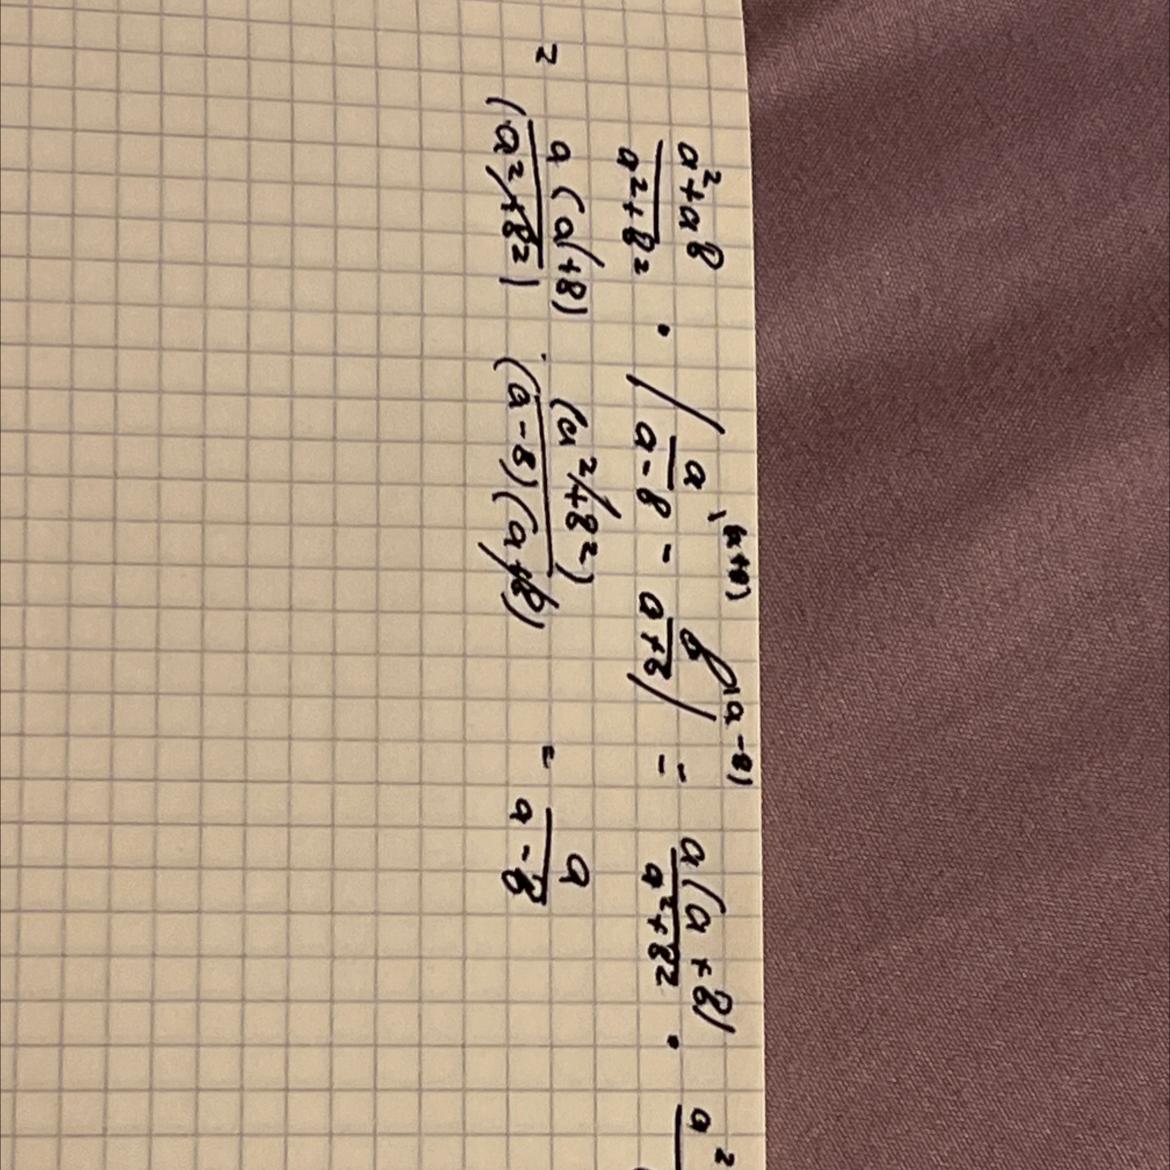 (a²+ab)/(a²+b²) · (a/(a-b) ^(a+b) - b/(a+b) ^(a-b)) = a(a+b)/(a²+b²) · a²
= a(a+b)/(a²+b²) · (a²+b²)/((a-b)(a+b)) = a/(a-b)